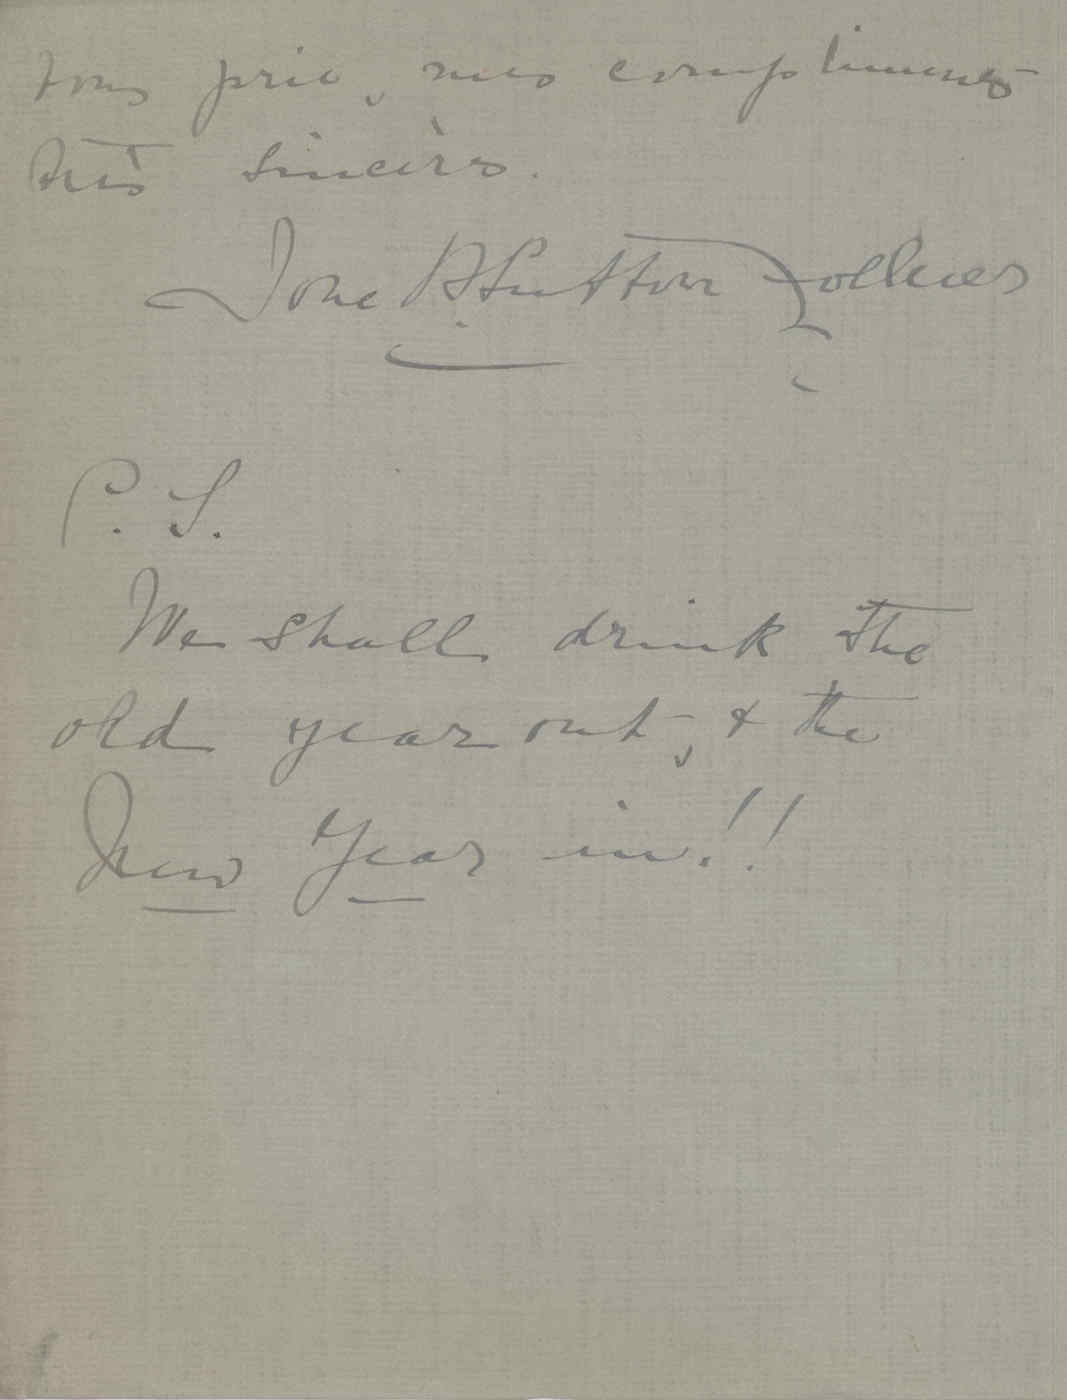 vous prie, mes compliments
très sincères.
Ione B Sutton Follmer
P. S.
We shall drink the
old year out, & the
New Year in.!!